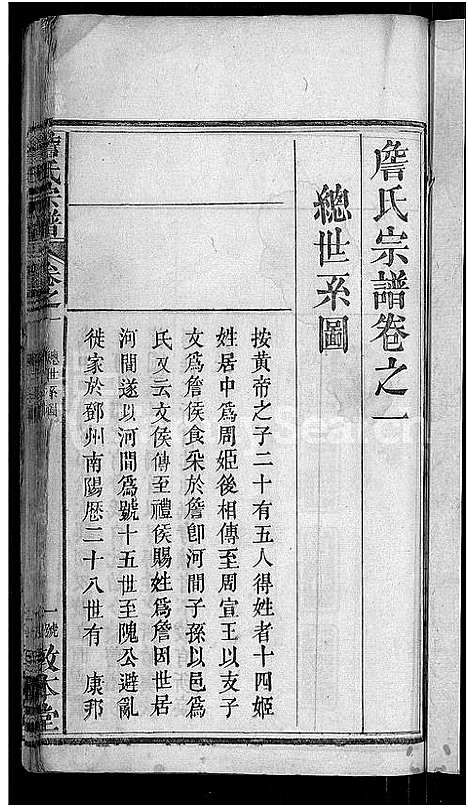 詹氏宗譜卷之一
總世系圖
按黃帝之子二十有五人得姓者十四姬
姓居中爲周姬後相傳至周宣王以支子
文爲詹侯食采於詹卽河間子孫以邑爲
氏又云文侯傳至禮侯賜姓爲詹因世居
河間遂以河間爲號十五世至隗公避亂
徙家於鄧州南陽歷二十八世有 康邦
詹氏宗譜
卷之一
總世系圖
一號
敦本堂